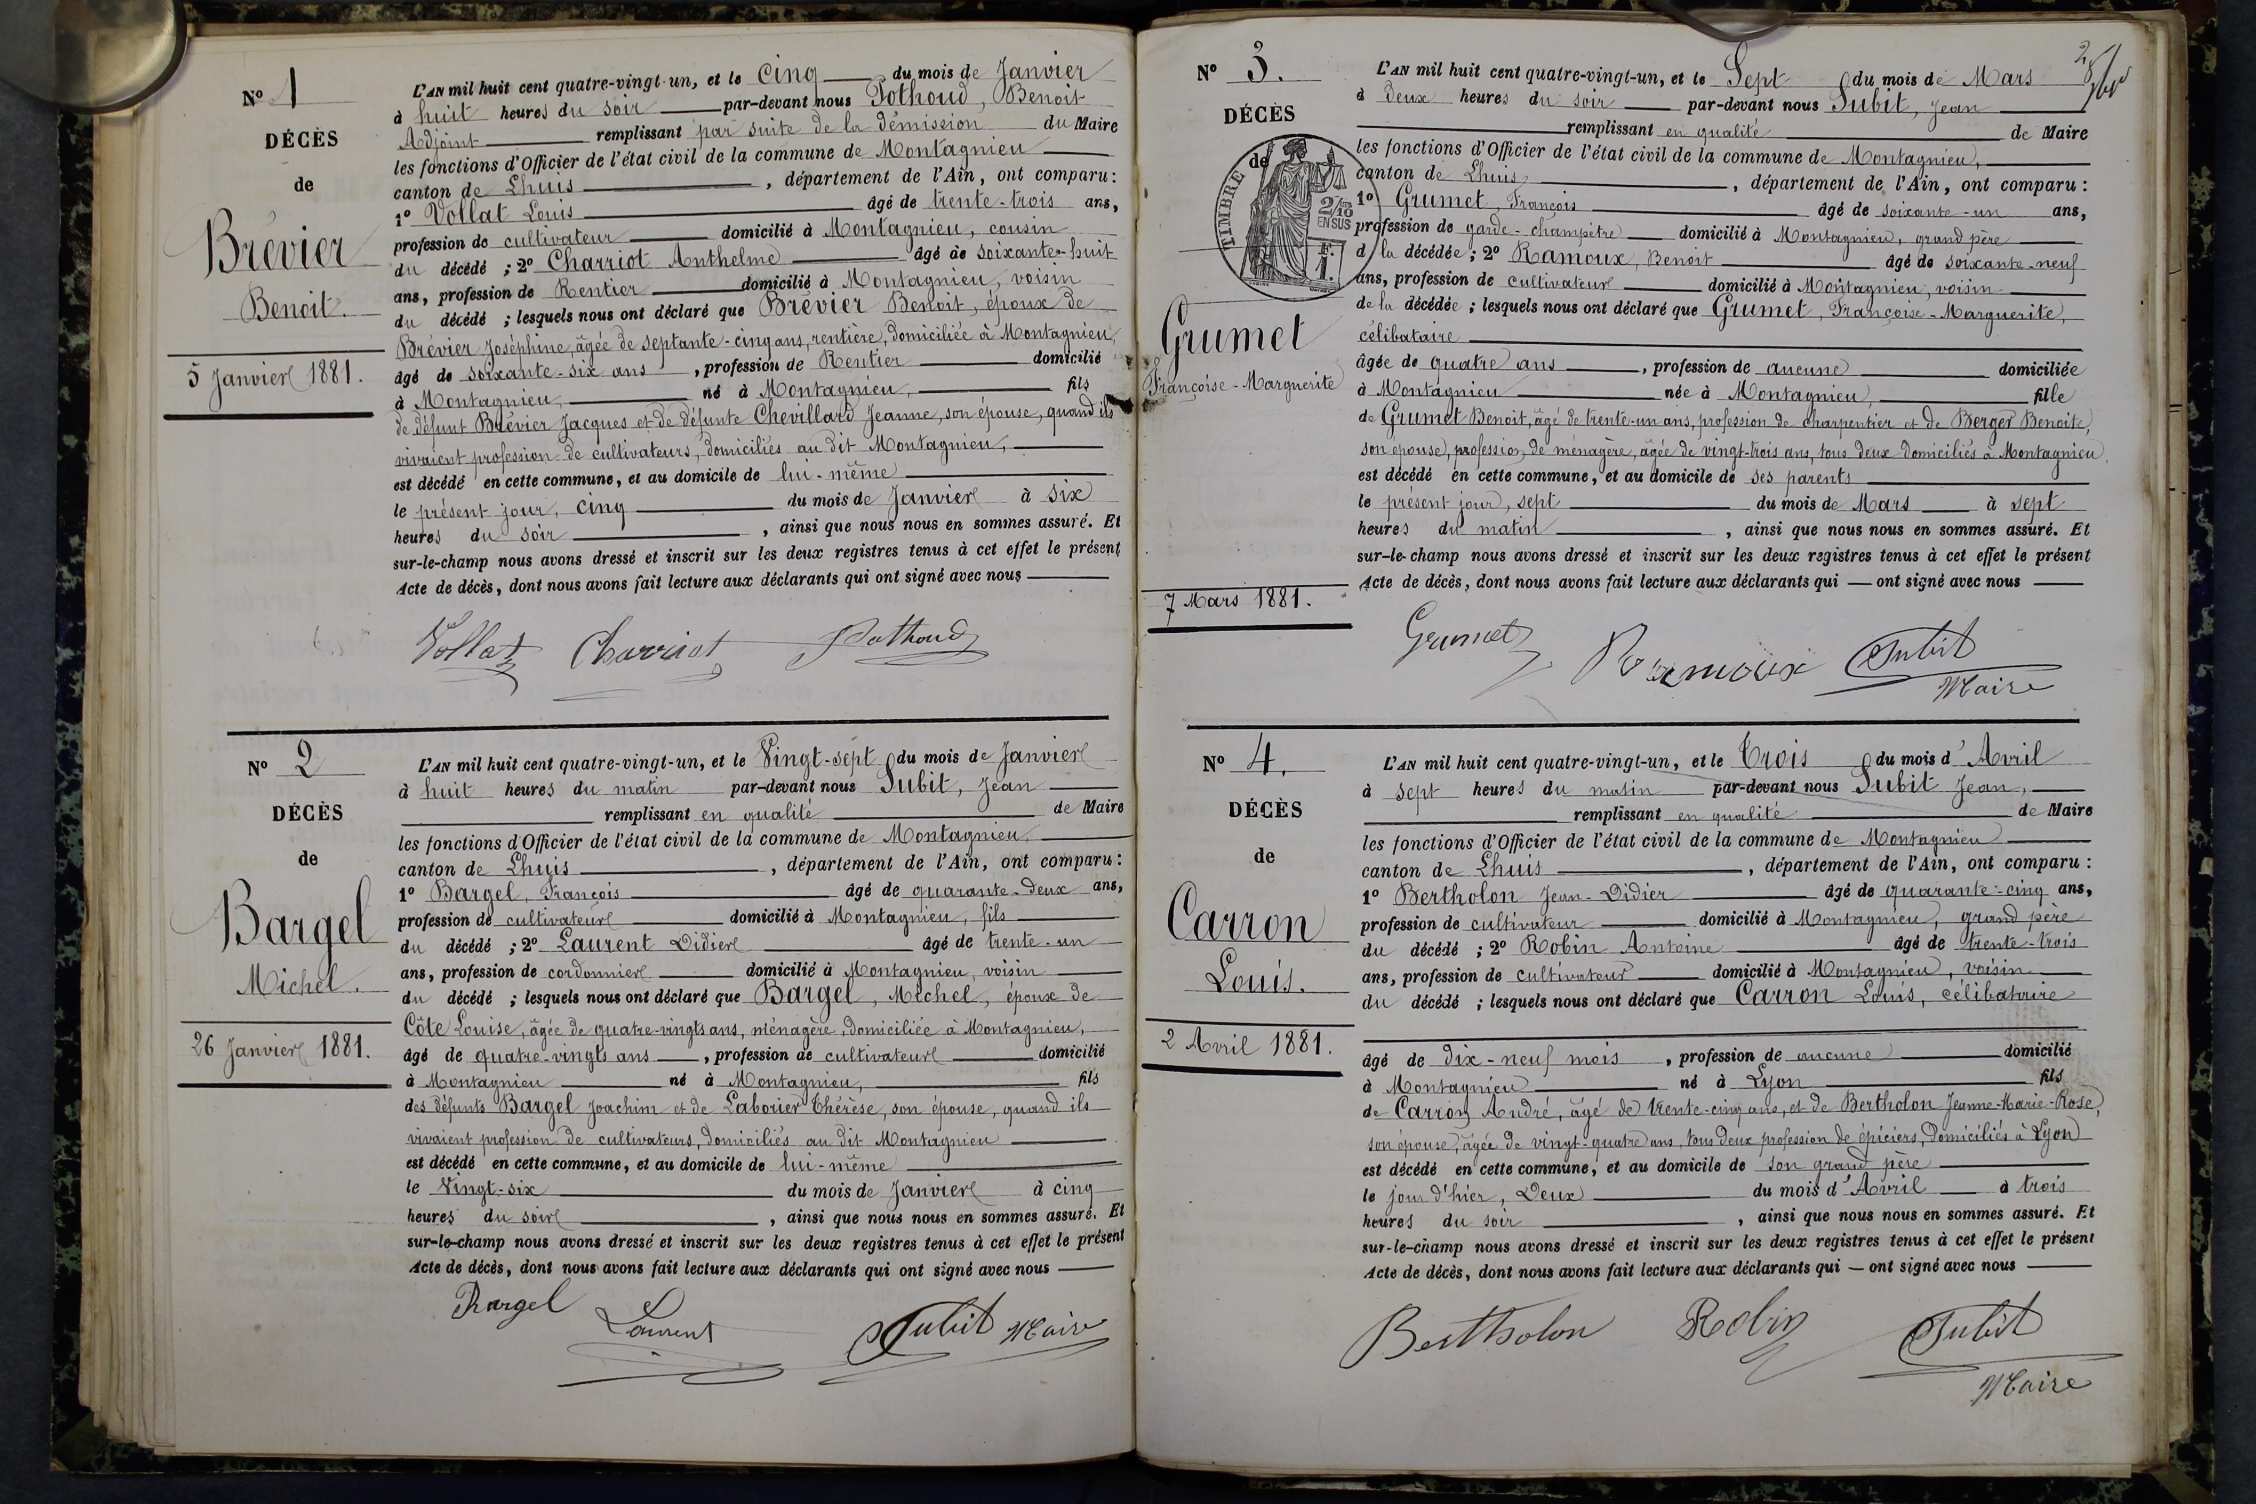 Nº 1
DÉCÈS
de
Brévier
Benoit.
5 Janvier 1881.
L'AN mil huit cent quatre-vingt-un, et le Cinq du mois de Janvier
à huit heures du soir par-devant nous Pothoud, Benoit
Adjoint remplissant par suite de la démission du Maire
les fonctions d'Officier de l'état civil de la commune de Montagnieu
canton de Lhuis, département de l'Ain, ont comparu:
1º Vollat Louis âgé de trente-trois ans,
profession de cultivateur domicilié à Montagnieu, cousin
du décédé ; 2º Charriot Anthelme âgé de soixante-huit
ans, profession de Rentier domicilié à Montagnieu, voisin
du décédé ; lesquels nous ont déclaré que Brévier Benoit, époux de
Brévier Joséphine, âgée de septante-cinq ans, rentière, domiciliée à Montagnieu,
âgé de soixante-six ans, profession de Rentier domicilié
à Montagnieu, né à Montagnieu, fils
de défunt Brévier Jacques et de défunte Chevillard Jeanne, son épouse, quand ils
vivaient profession de cultivateurs, domiciliés au dit Montagnieu,
est décédé en cette commune, et au domicile de lui-même
le présent jour, cinq du mois de Janvier à six
heures du soir, ainsi que nous nous en sommes assuré. Et
sur-le-champ nous avons dressé et inscrit sur les deux registres tenus à cet effet le présent
Acte de décès, dont nous avons fait lecture aux déclarants qui ont signé avec nous
Vollat Charriot Pothoud
Nº 2
DÉCÈS
de
Bargel
Michel.
26 Janvier 1881.
L'AN mil huit cent quatre-vingt-un, et le Vingt-sept du mois de Janvier
à huit heures du matin par-devant nous Subit, Jean
remplissant en qualité de Maire
les fonctions d'Officier de l'état civil de la commune de Montagnieu
canton de Lhuis, département de l'Ain, ont comparu:
1º Bargel, François âgé de quarante-deux ans,
profession de cultivateur domicilié à Montagnieu, fils
du décédé ; 2º Laurent Didier âgé de trente-un
ans, profession de cordonnier domicilié à Montagnieu, voisin
du décédé ; lesquels nous ont déclaré que Bargel, Michel, époux de
Côte Louise, âgée de quatre-vingts ans, ménagère, domiciliée à Montagnieu,
âgé de quatre-vingts ans, profession de cultivateur domicilié
à Montagnieu né à Montagnieu, fils
des défunts Bargel Joachim et de Laborier Thérèse, son épouse, quand ils
vivaient profession de cultivateurs, domiciliés au dit Montagnieu
est décédé en cette commune, et au domicile de lui-même
le Vingt-six du mois de Janvier à cinq
heures du soir, ainsi que nous nous en sommes assuré. Et
sur-le-champ nous avons dressé et inscrit sur les deux registres tenus à cet effet le présent
Acte de décès, dont nous avons fait lecture aux déclarants qui ont signé avec nous
Bargel Laurent Subit Maire
Nº 3.
DÉCÈS
de
TIMBRE
2/10
EN SUS
1F.
Grumet
Françoise-Marguerite
7 Mars 1881.
L'AN mil huit cent quatre-vingt-un, et le Sept du mois de Mars
à deux heures du soir par-devant nous Subit, Jean
remplissant en qualité de Maire
les fonctions d'Officier de l'état civil de la commune de Montagnieu,
canton de Lhuis, département de l'Ain, ont comparu:
1º Grumet, François âgé de soixante-un ans,
profession de garde-champêtre domicilié à Montagnieu, grand père
d/la décédée ; 2º Ramoux, Benoit âgé de soixante-neuf
ans, profession de cultivateur domicilié à Montagnieu, voisin
de la décédée ; lesquels nous ont déclaré que Grumet, Françoise-Marguerite,
célibataire
âgée de quatre ans, profession de aucune domiciliée
à Montagnieu née à Montagnieu, fille
de Grumet Benoit, âgé de trente-un ans, profession de charpentier et de Berger Benoite,
son épouse, profession de ménagère, âgée de vingt-trois ans, tous deux domiciliés à Montagnieu.
est décédé en cette commune, et au domicile de ses parents
le présent jour, sept du mois de Mars à sept
heures du matin, ainsi que nous nous en sommes assuré. Et
sur-le-champ nous avons dressé et inscrit sur les deux registres tenus à cet effet le présent
Acte de décès, dont nous avons fait lecture aux déclarants qui — ont signé avec nous
Grumet Ramoux Subit
Maire
Nº 4.
DÉCÈS
de
Carron
Louis.
2 Avril 1881.
L'AN mil huit cent quatre-vingt-un, et le Trois du mois d'Avril
à sept heures du matin par-devant nous Subit Jean,
remplissant en qualité de Maire
les fonctions d'Officier de l'état civil de la commune de Montagnieu
canton de Lhuis, département de l'Ain, ont comparu :
1º Bertholon Jean-Didier âgé de quarante-cinq ans,
profession de cultivateur domicilié à Montagnieu, grand père
du décédé ; 2º Robin Antoine âgé de trente-trois
ans, profession de cultivateur domicilié à Montagnieu, voisin
du décédé ; lesquels nous ont déclaré que Carron Louis, célibataire
âgé de dix-neuf mois, profession de aucune domicilié
à Montagnieu né à Lyon fils
de Carron André, âgé de trente-cinq ans, et de Bertholon Jeanne-Marie-Rose,
son épouse, âgée de vingt-quatre ans, tous deux profession de épiciers, domiciliés à Lyon
est décédé en cette commune, et au domicile de son grand père
le jour d'hier, Deux du mois d'Avril à trois
heures du soir, ainsi que nous nous en sommes assuré. Et
sur-le-champ nous avons dressé et inscrit sur les deux registres tenus à cet effet le présent
Acte de décès, dont nous avons fait lecture aux déclarants qui — ont signé avec nous
Bertholon Robin Subit
Maire